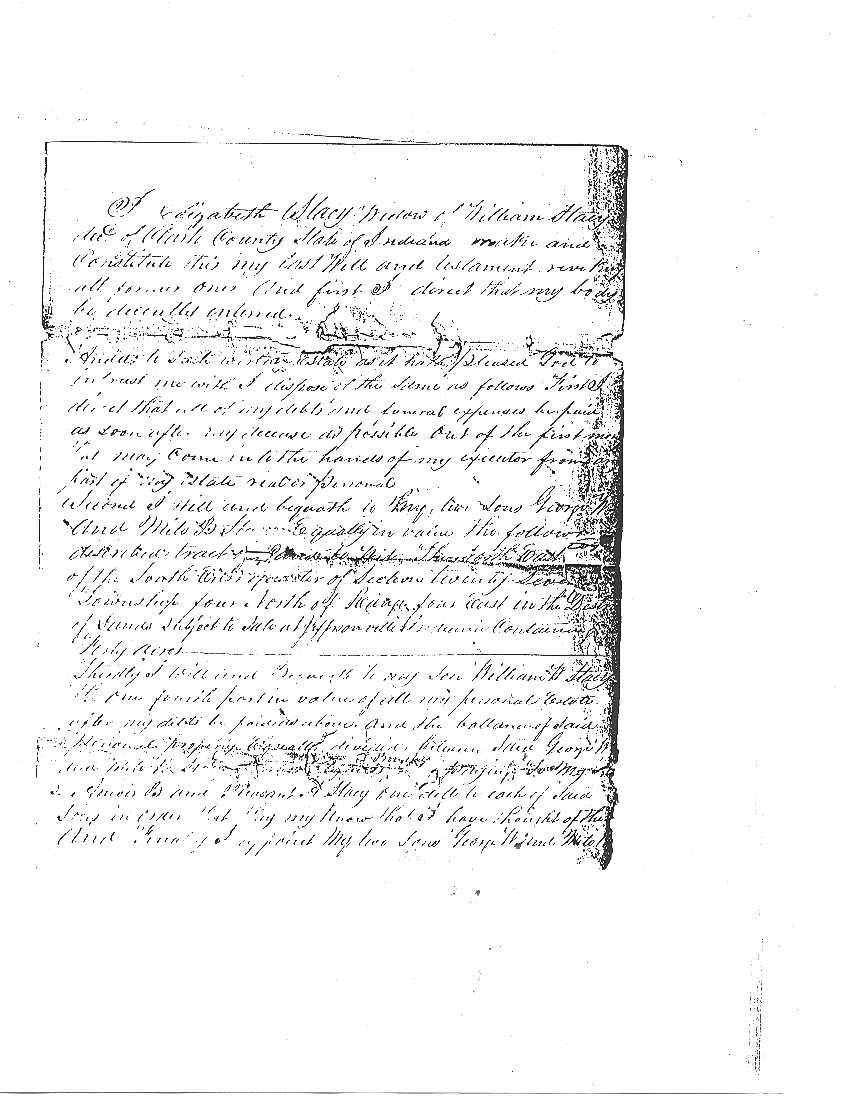 I Elizabeth Stacy Widow of William Stacy
decd of Clark County State of Indiana make and
Constitute this my Last Will and testament
all former ones And first I direct that my body
be decently entered
And as to such Estate as it hath pleased God to
intrust me with I dispose of the same as follows First I
direct that all of my debts and funeral expenses be paid
as soon after my decease as possible out of the first
that may Come into the hands of my executor from
part of my Estate real or personal
Second I Will and bequath to my two Sons George W
And Milo B Equally in value the
described tract
of the South East quarter of Section twenty
Township four North of Range four East in the
of Lands Subject to Sale at Jeffersonville Containing
forty acres
Thirdly I Will and Bequath to my Son William W Stacy
one fourth part in value of all my personal Estate
after my debts be paid as above And the ballance of Said
personal property Equally divided between Said George W
and Milo B
B and A Stacy One doll to each of Said
Sons in order that they my Know that I have thought of
And Finaly I appoint My two Sons George W and Milo